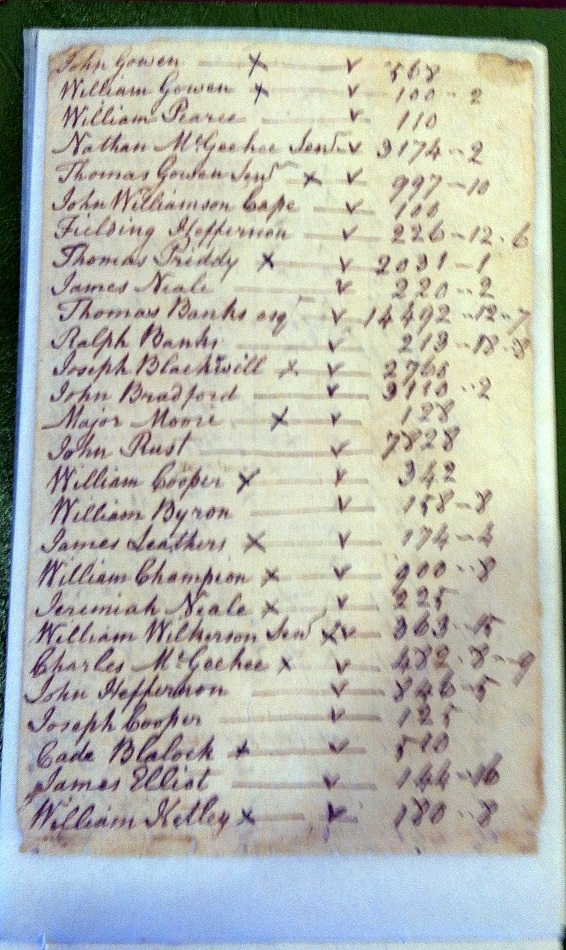 John Gowen x — v 568
William Gowen x — v 100 - 2
William Pearce — v 110
Nathan McGeehee Senr v 3174 - 2
Thomas Gowen Senr x v 997 - 10
John Williamson Cape — v 100
Fielding Heffernon — v 226 - 12 - 6
Thomas Priddy x — v 2031 - 1
James Neale — v 220 - 2
Thomas Banks esqr — v 14492 - 12 - 7
Ralph Banks — v 213 - 18 - 8
Joseph Blackwill x v 2760
John Bradford — v 3110 - 2
Major Moore x v 128
John Rust — v 7828
William Cooper x — v 342
William Byron — v 158 - 8
James Leathers x — v 174 - 4
William Champion x — v 900 - 8
Jeremiah Neale x — v 225
William Wilkerson Senr x v 363 - 15
Charles McGeehee x — v 482 - 8 - 9
John Heffernon — v 846 - 5
Joseph Cooper — v 125
Cade Blalock x — v 510
James Elliot — v 144 - 16
William Ketley x — v 180 - 8